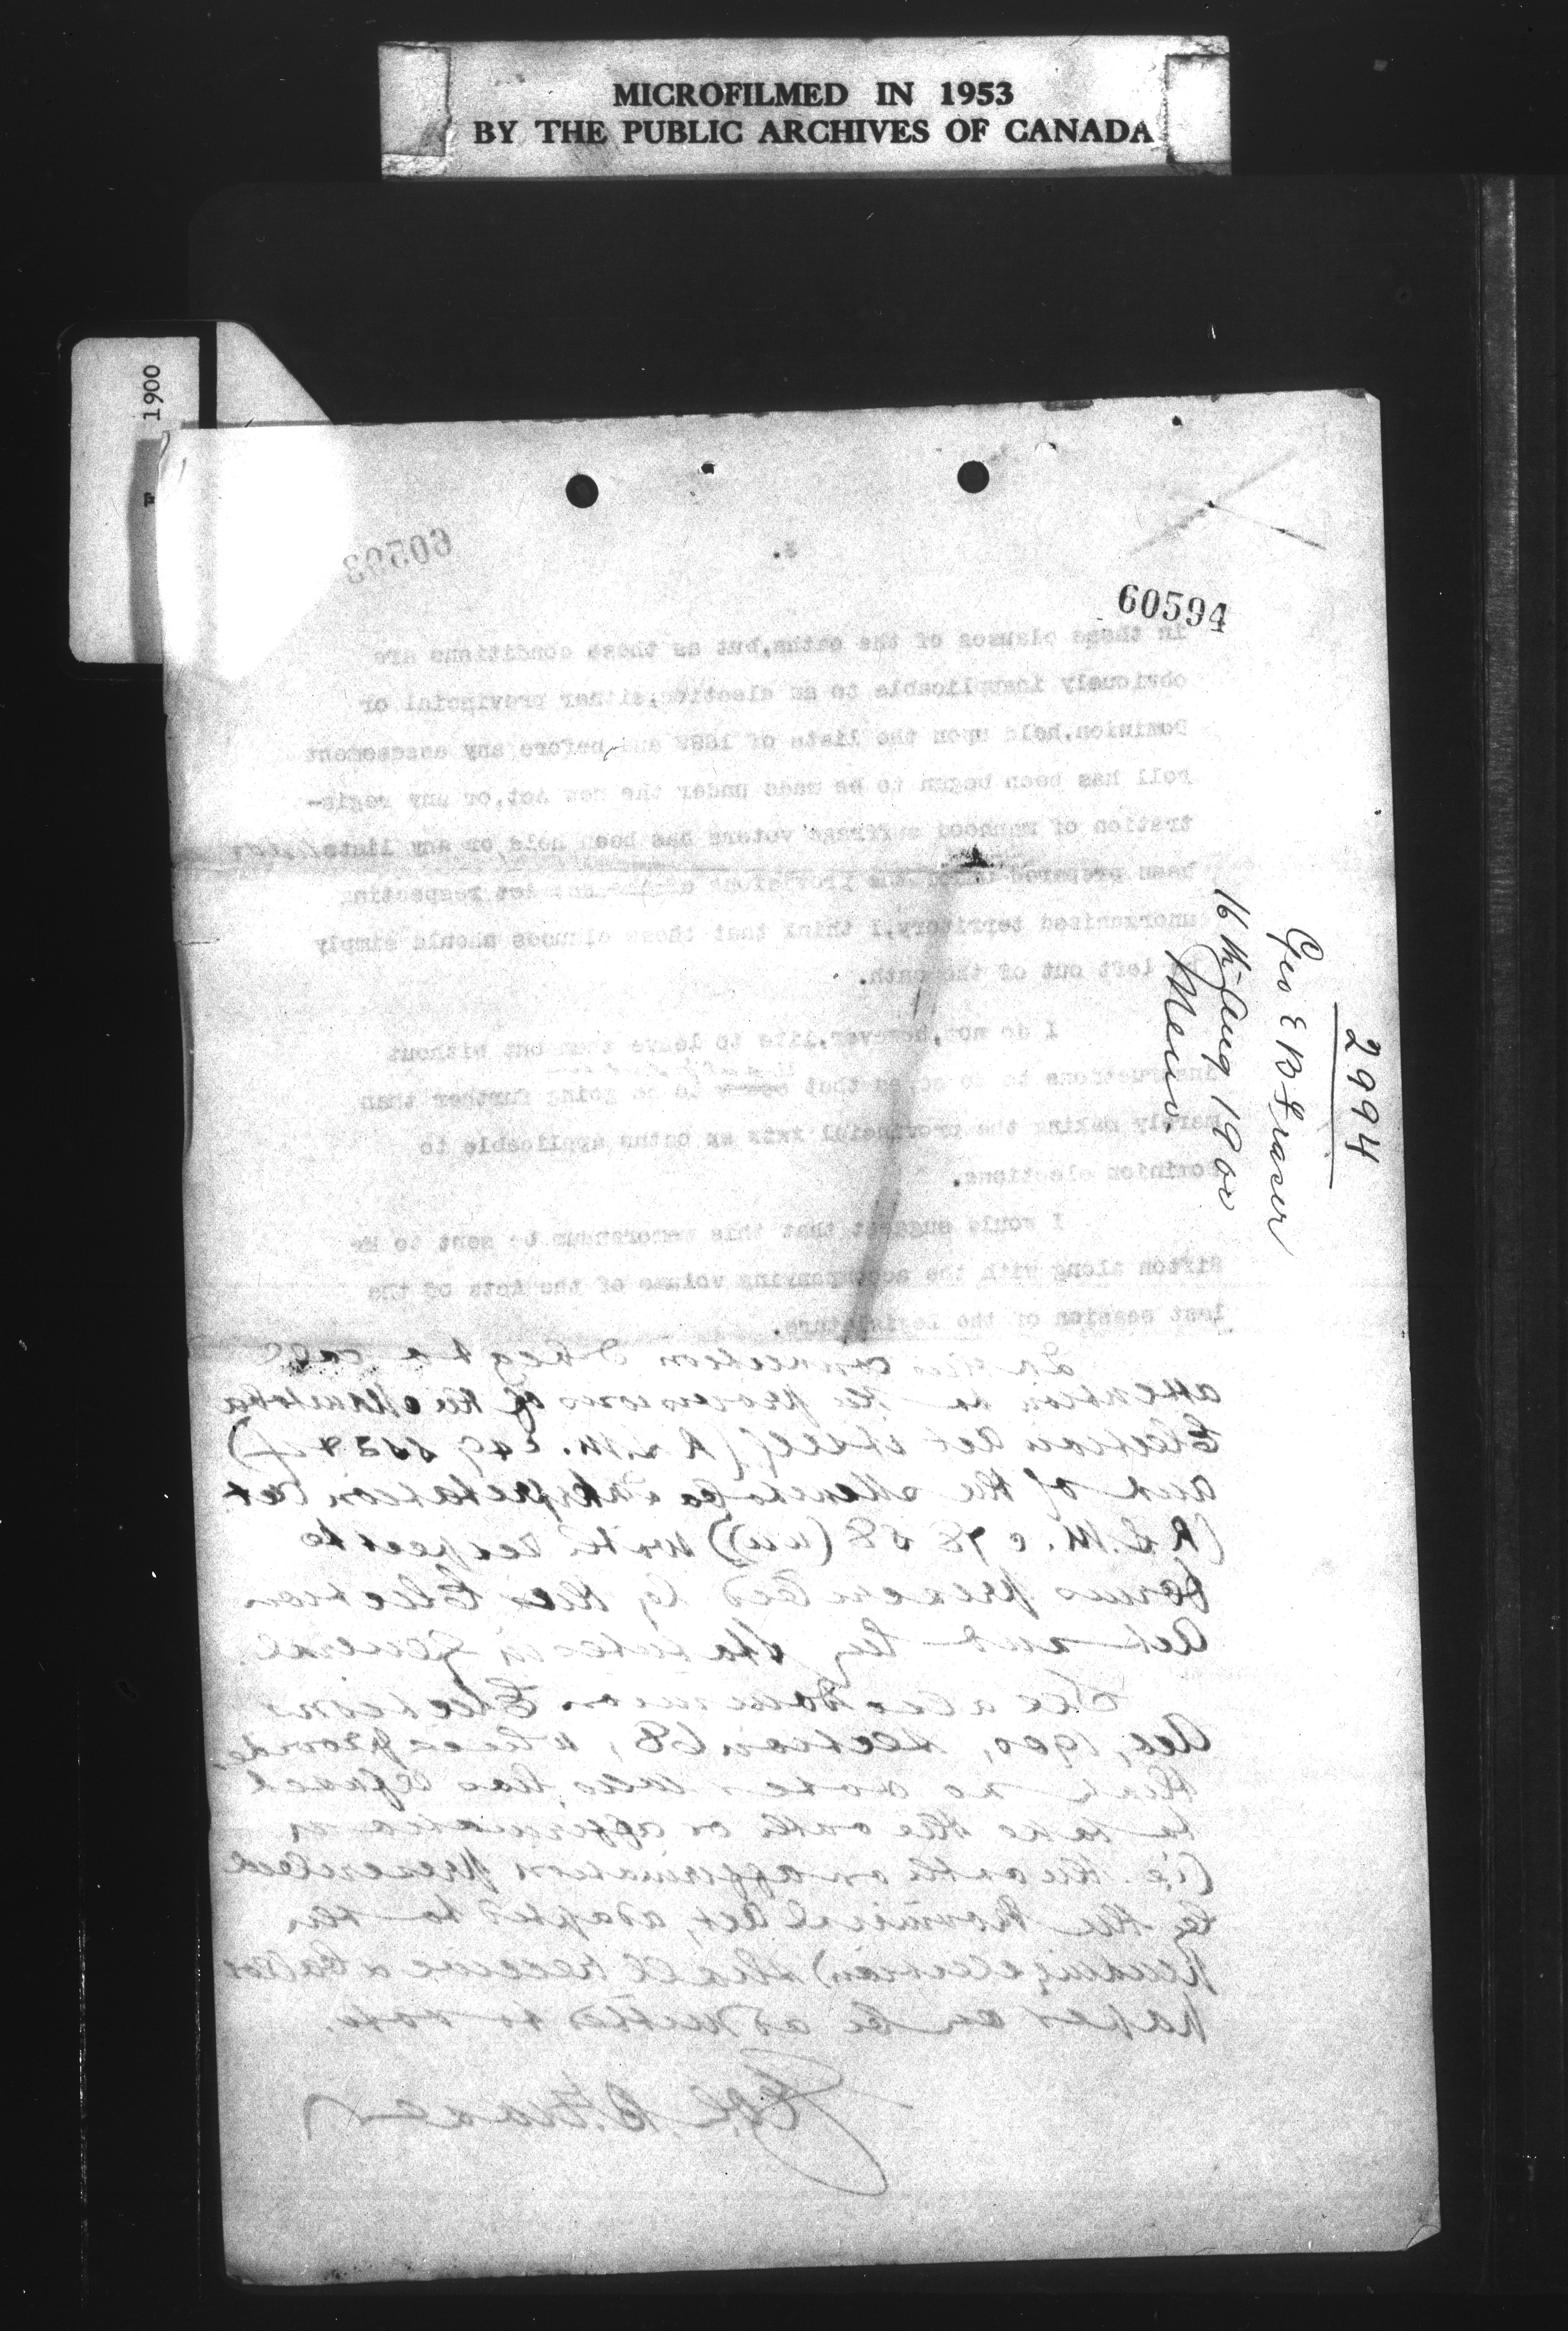 MICROFILMED IN 1953
BY THE PUBLIC ARCHIVES OF CANADA
1900
60593
3.
60594
in these clauses of the oaths,but as these conditions are
obviously inapplicable to an election,either provincial or
Dominion,held upon the lists of 1899 and before any assessment
roll has been begun to be made under the new Act,or any regis-
tration of manhood suffrage voters has been held or any lists
been prepared under the provisions of the Act respecting
unorganised territory,I think that these clauses should simply
be left out of the oath.
I do not,however,like to leave them out without
instructions to do so,as that to be going further than
merely making the provincial oaths applicable to
Dominion elections.
I would suggest that this memorandum be sent to Mr
Sifton along with the accompanying volume of the Acts of the
last session of the legislature.
In this connection I beg to call
attention to the provisions of the Manitoba
Election Act itself (R.S.M. c 49
and of the Manitoba Interpretation Act
(R.S.M. c 78 s 8 with respect to
forms prescribed by the Election
Act and by Statutes in general.
See also Dominion Elections
Act, 1900, section 68, which provides
that no voter who has refused
to take the oath or affirmation
(i.e. the oath or affirmation prescribed
by the Provincial Act, adapted to the
pending election) shall receive a ballot
paper or be admitted to vote.
Geo. E. B. Fraser
2994
Geo E B Fraser
16th Aug 1900
Memo.